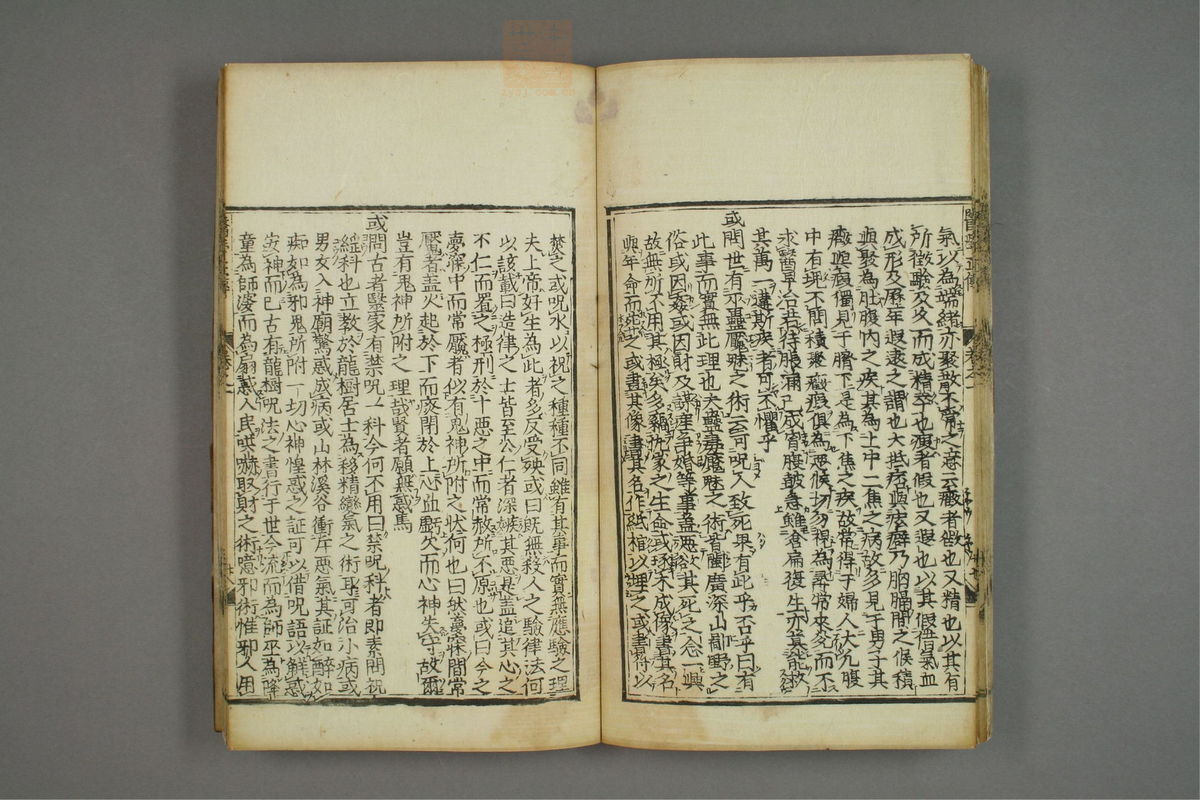 氣以為端緒亦聚散不常之意云癥者徵也又精也以其有
所徵驗及久而成精萃也瘕者假也又遐也以其假借氣血
成形及歷年遐遠之謂也大抵痞與痃癖乃胸膈間之候積
與聚為肚腹內之疾其為上中二焦之病故多見于男子其
癥與瘕獨見于臍下是為下焦之疾故常得于婦人大凡腹
中有塊不問積聚癥瘕俱為惡候切勿視為尋常來多而不
求醫早治若待脹滿已成胷腹鼓急雖倉扁復生亦莫能救
其萬一遘斯疾者可不懼乎
或問世有巫蠱魘魅之術云可呪人致死果有此乎否乎曰有
此事而實無此理也夫蠱毒魘魅之術皆閩廣深山鄙野之
俗或因姦或因財及謀產爭婚等事蓋惡欲其死之念一興
故無所不用其極矣多竊所家之生命或琢木成像書其名
與年命而死之或畫其像書其名作紙棺以埋之或書符以
焚之或呪水以祝之種種不同雖有其事而實無應驗之理
夫上帝好生為此者多反受殃或曰既無殺人之驗律法何
以該載曰造律之士皆至公仁者深嫉其惡是蓋追其心之
不仁而置之極刑於十惡之中而常赦所不原也或曰今之
夢寐中而常魘者似有鬼神所附之狀何也曰然夢寐間常
魘者蓋火起於下而痰閉於上心血虧欠而心神失守故爾
豈有鬼神所附之理哉賢者願無惑焉
或問古者醫家有禁呪一科今何不用曰禁呪科者即素問祝
繇科也立教於龍樹居士為移精變氣之術耳可治小病或
男女入神廟驚惑成病或山林溪谷衝斥惡氣其証如醉如
痴如為邪鬼所附一切心神惶惑之証可以借呪語以解惑
安神而已古有龍樹呪法之書行于世今流而為師巫為降
童為師婆而為扇惑人民哄嚇取財之術噫邪術惟邪人用